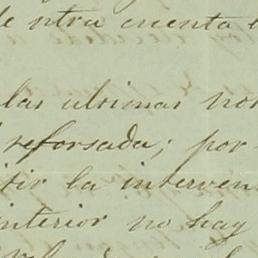 de ntra cuenta e
las ultimas no
reforsada; por
tir la interven
interior no hay